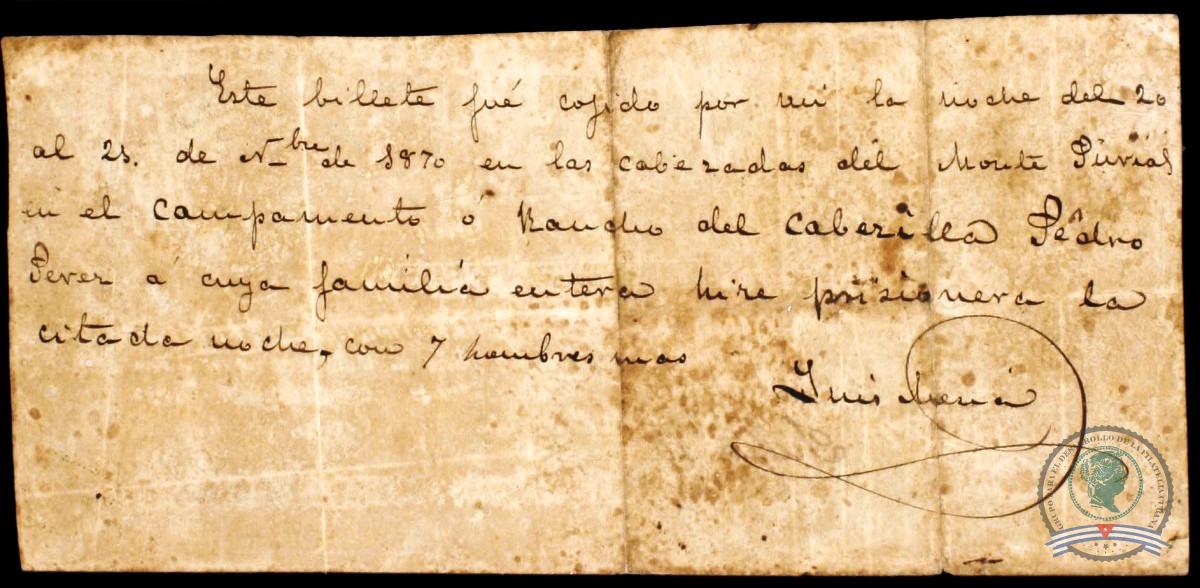 Este billete fué cojido por mi la noche del 20
al 21. de N-bre de 1870 en las cabezadas del Monte Purial
en el campamento ó Rancho del cabezilla Pedro
Perez á cuya familia entera hize prisionera la
citada noche, con 7 hombres mas
Luis Mena
GRUPO PARA EL DESARROLLO DE LA FILATELIA CUBANA